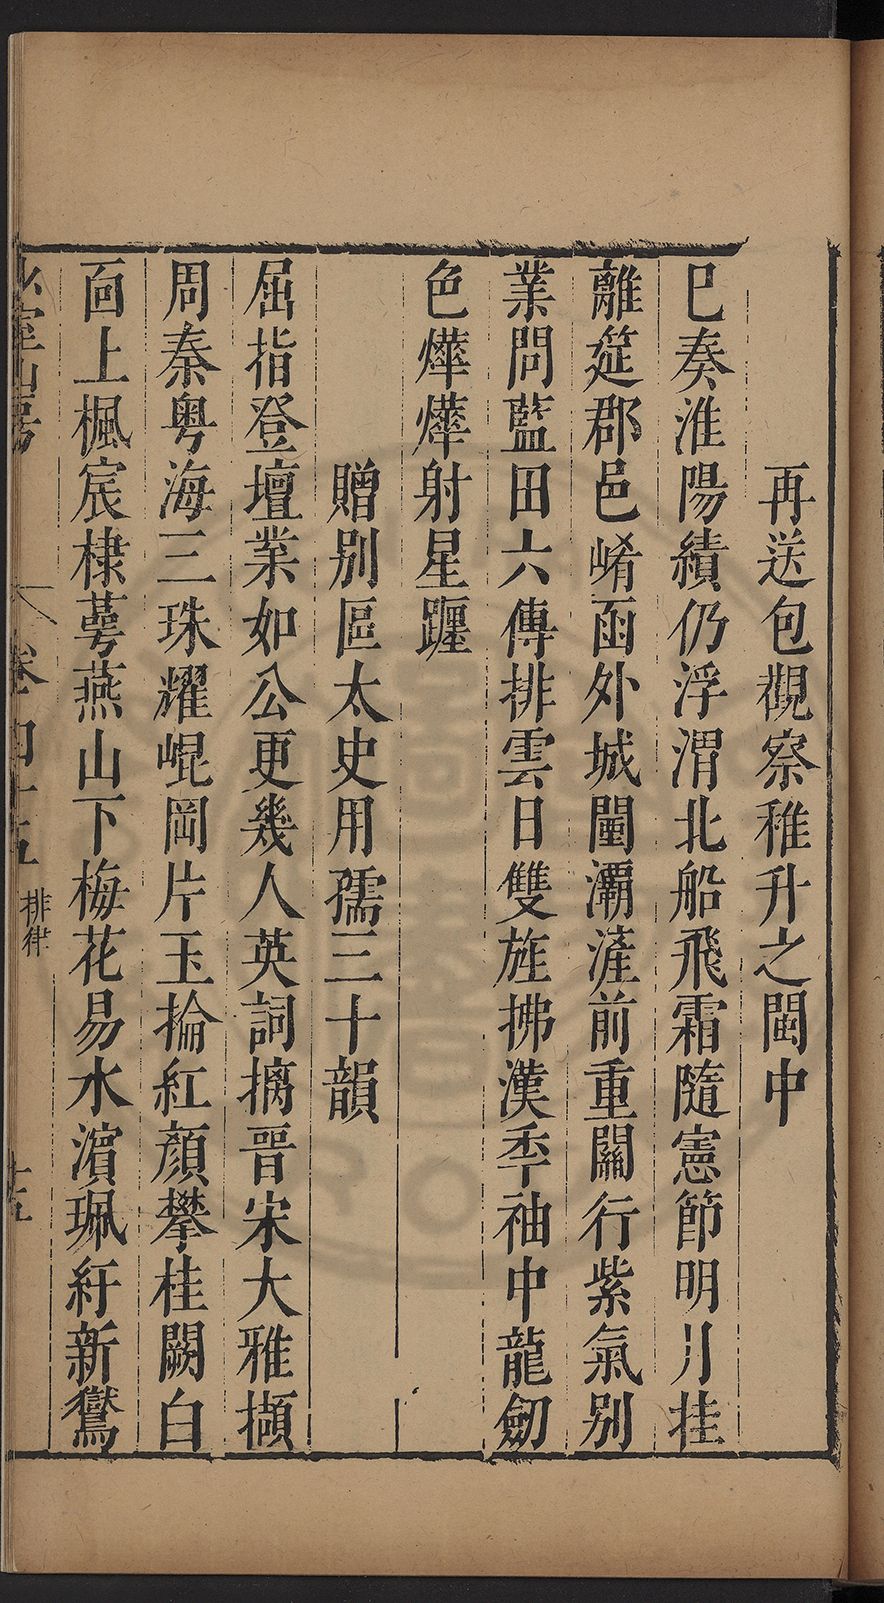 再送包觀察稚升之閩中
已奏淮陽績仍浮渭北船飛霜隨憲節明月挂
離筵郡邑崤函外城闉灞滻前重關行紫氣别
業問藍田六傳排雲日雙旌拂漢秊袖中龍劒
色燁燁射星躔
贈别區太史用孺三十韻
屈指登壇業如公更幾人英詞摛晉宋大雅擷
周秦粤海三珠耀崐岡片玉掄紅顏攀桂闕白
面上楓宸棣萼燕山下梅花易水濵珮紆新鸑
山房
卷四十五
排律
十五